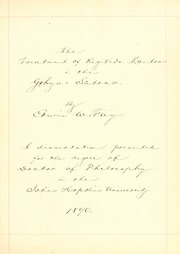 The
Treatment of Rigveda Mantras
in the
Gṛhya-Sūtras
By
Edwin W. Fay
A dissertation presented
for the degree of
Doctor of Philosophy
in the
Johns Hopkins University
1890.